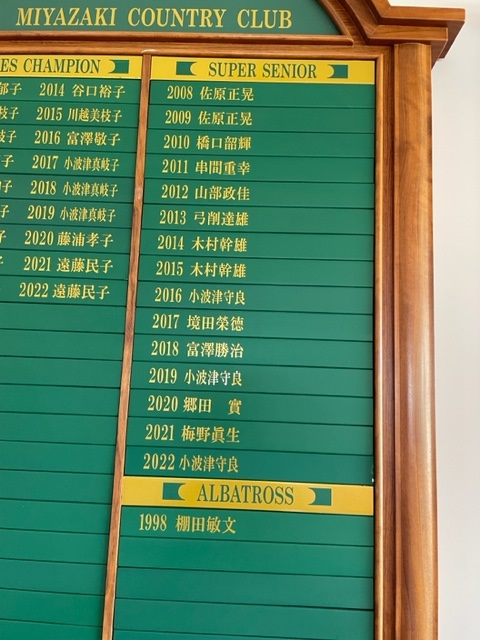 MIYAZAKI COUNTRY CLUB
ES CHAMPION
2014 谷口裕子
2015 川越美枝子
2016 富澤敬子
2017 小波津真岐子
2018 小波津真岐子
2019 小波津真岐子
2020 藤浦孝子
2021 遠藤民子
2022 遠藤民子
SUPER SENIOR
2008 佐原正晃
2009 佐原正晃
2010 橋口韶輝
2011 串間重幸
2012 山部政佳
2013 弓削達雄
2014 木村幹雄
2015 木村幹雄
2016 小波津守良
2017 境田榮徳
2018 富澤勝治
2019 小波津守良
2020 郷田 實
2021 梅野眞生
2022 小波津守良
ALBATROSS
1998 棚田敏文